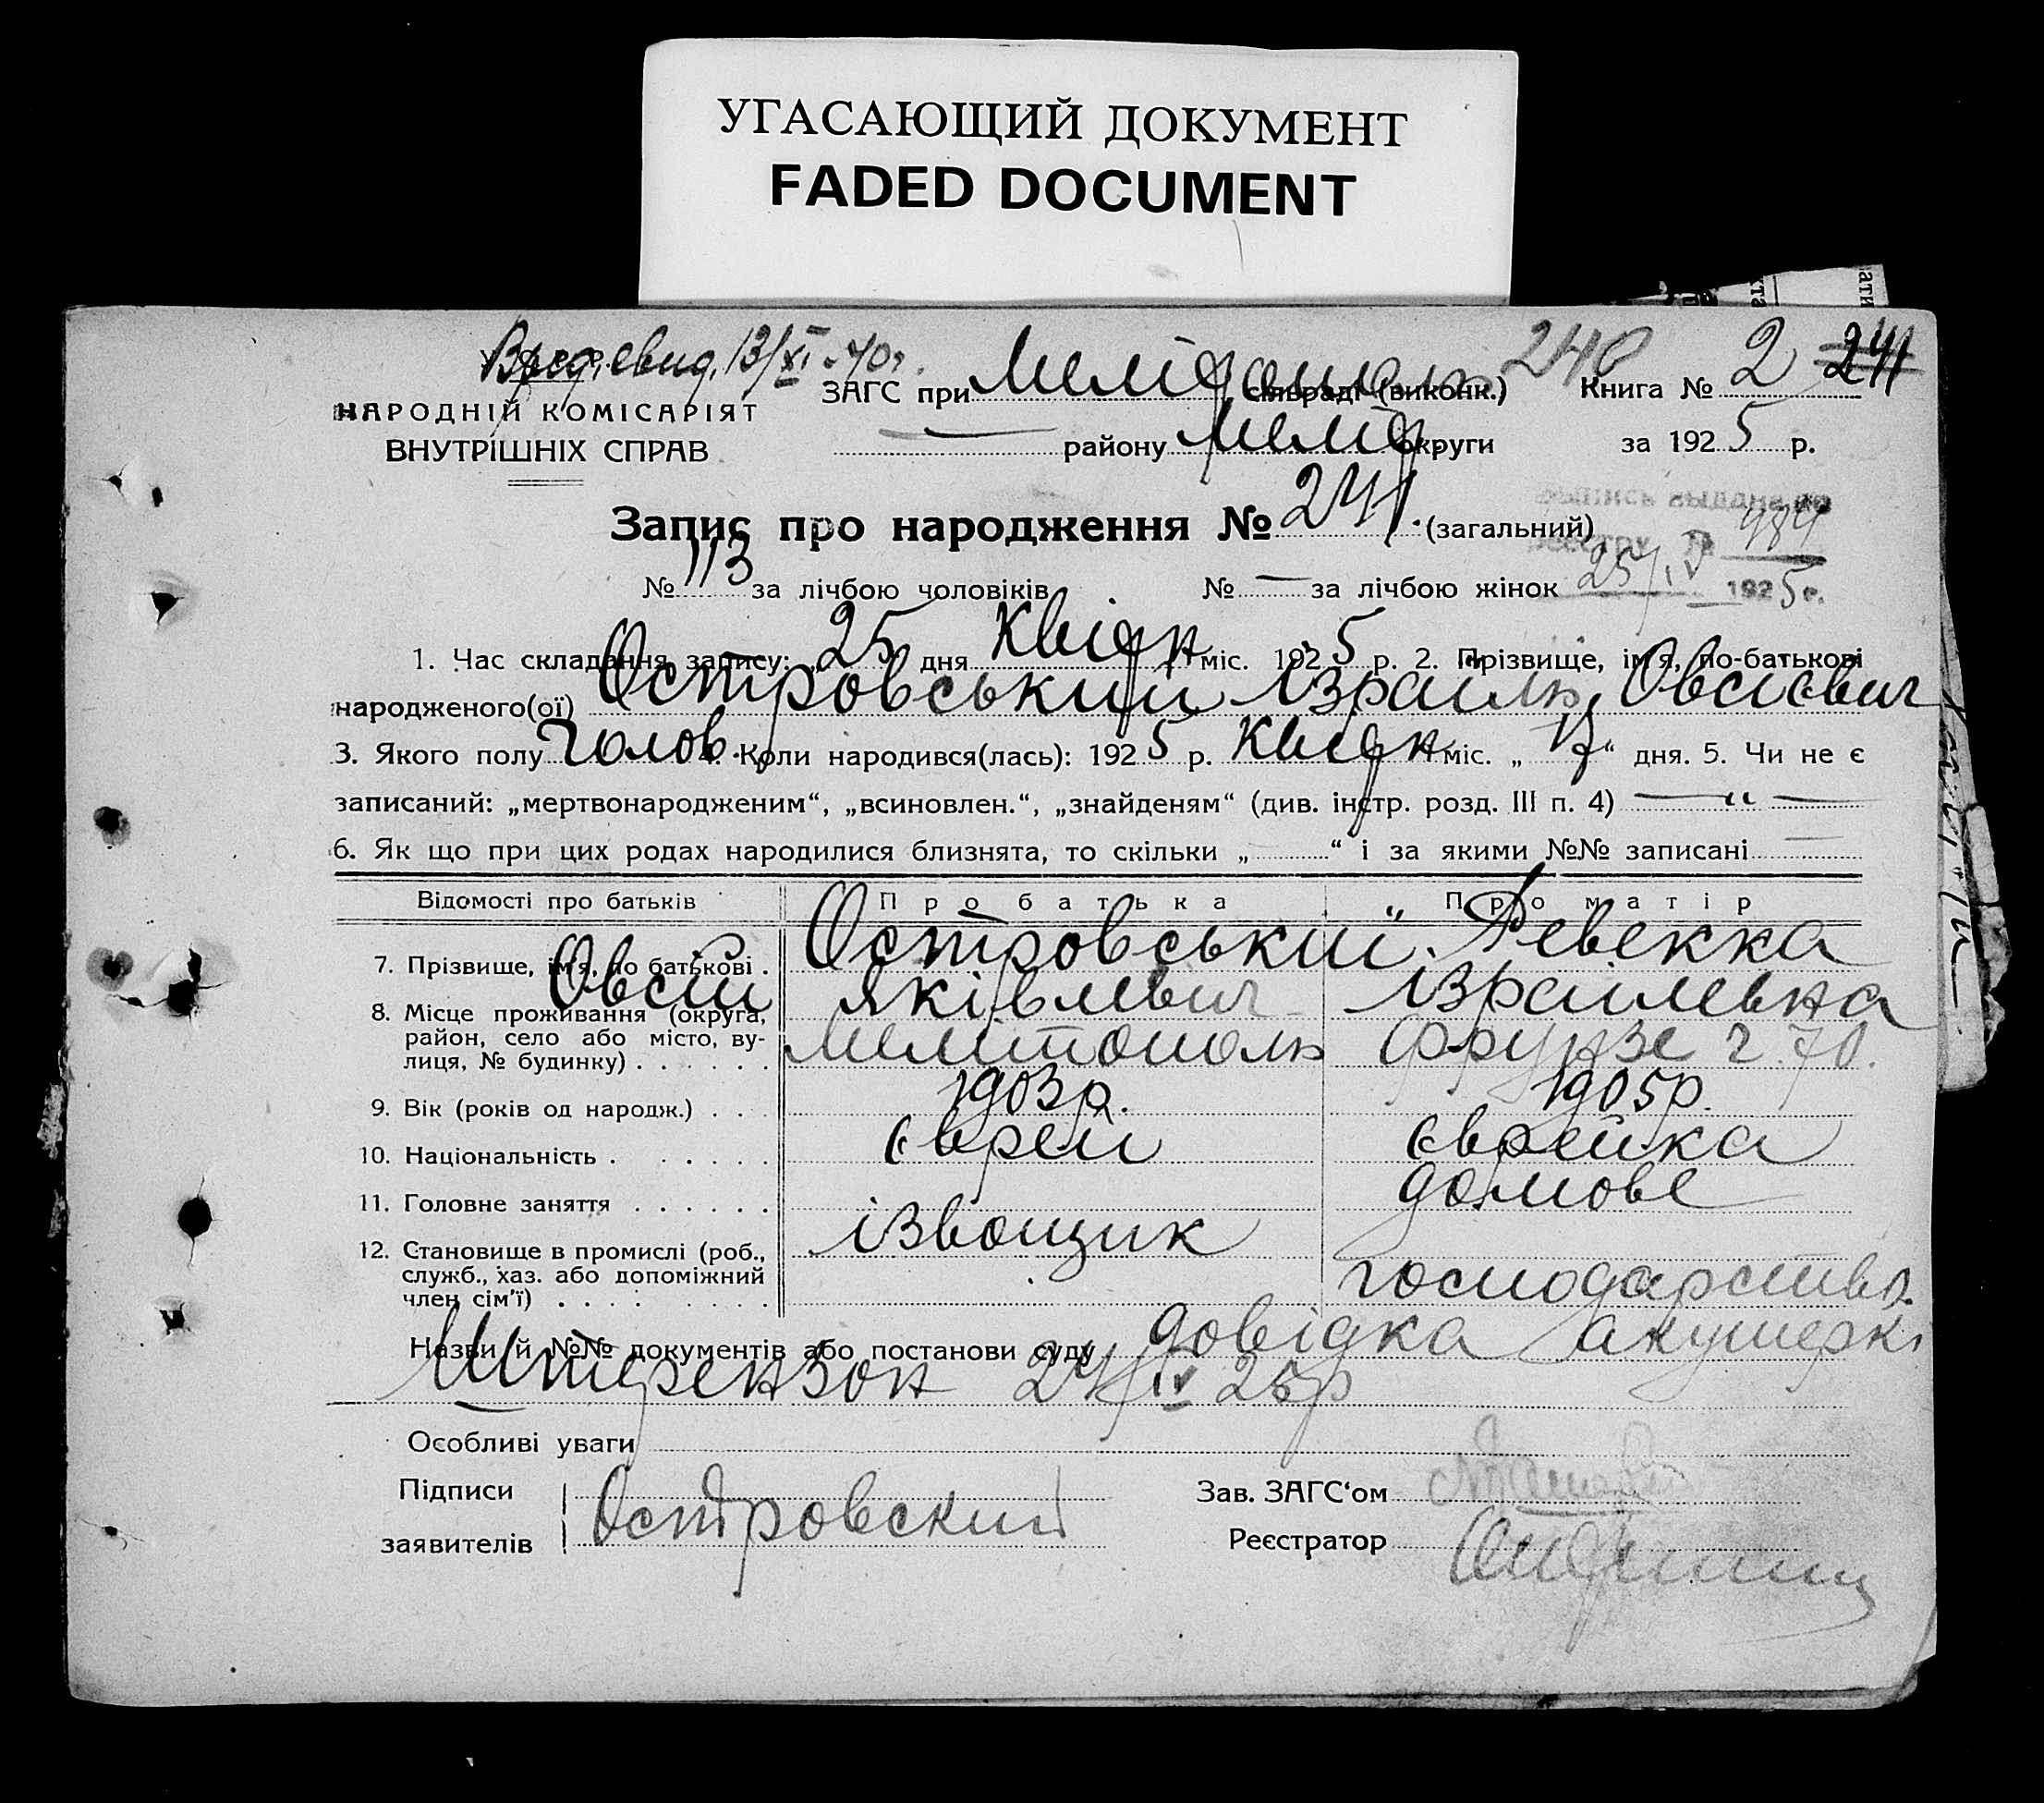 УГАСАЮЩИЙ ДОКУМЕНТ
FADED DOCUMENT
свид. 13/XI-40г.
240
241
НАРОДНІЙ КОМІСАРІЯТ
ВНУТРІШНІХ СПРАВ
ЗАГС при сільраді (виконк.) Книга № 2
— району Меліт. округи за 1925 р.
Запис про народження № 241. (загальний)
№ 113 за лічбою чоловіків № — за лічбою жінок
выдана по
№ 484
25/IV 1925г.
1. Час складання запису: „25 дня Квітн міс. 1925 р. 2. Прізвище, ім'я, по-батькові
народженого(ої) Островський Ізраїль Овсієвич
3. Якого полу чолов. 4. Коли народився(лась): 1925 р. Квітн міс. „17“ дня. 5. Чи не є
записаний: „мертвонародженим“, „всиновлен.“, „знайденям“ (див. інстр. розд. III п. 4) — „ —
6. Як що при цих родах народилися близнята, то скільки „ “ і за якими №№ записані —
Відомості про батьків Про батька Про матір
7. Прізвище, ім'я, по батькові . Островський Ревекка
Овсій Яківлевич Ізраілевна
8. Місце проживання (округа,
район, село або місто, ву-
лиця, № будинку) . . . . . . Мелітополь Фрунзе ч. 70.
9. Вік (років од народж.) . . . 1903р. 1905р.
10. Національність . . . . . . єврей єврейка
11. Головне заняття . . . . . . ізвощик домове
12. Становище в промислі (роб.,
служб., хаз. або допоміжний
член сім'ї) . . . . . . . . . господарство.
Назви й №№ документів або постанови суду довідка акушерки
Штерензон 24/IV 25р
Особливі уваги
Підписи
заявителів Островский
Зав. ЗАГС‘ом
Реєстратор